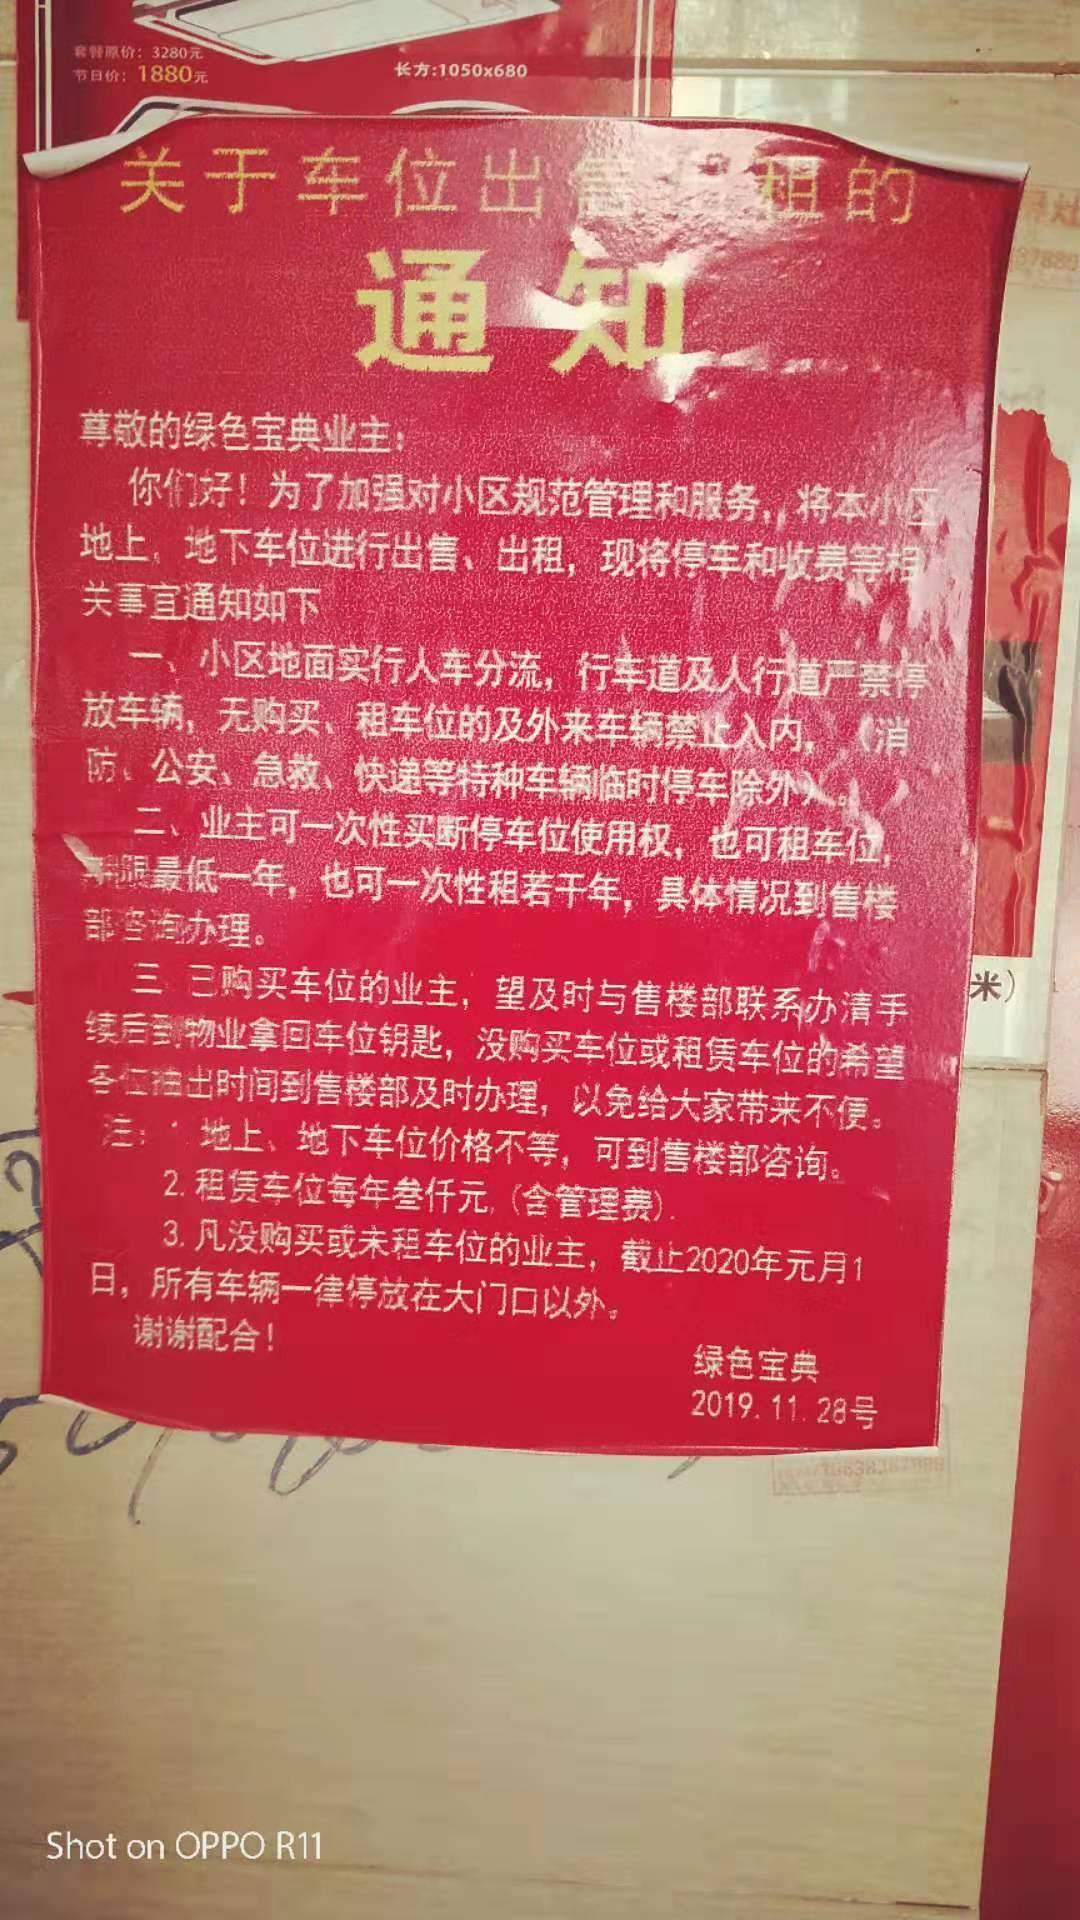 套餐原价：3280元
节日价：1880元
长方:1050x680
关于车位出售 租的
通知
尊敬的绿色宝典业主：
你们好！为了加强对小区规范管理和服务，将本小区
地上，地下车位进行出售、出租，现将停车和收费等相
关事宜通知如下
一、小区地面实行人车分流，行车道及人行道严禁停
放车辆，无购买、租车位的及外来车辆禁止入内，（消
防、公安、急救、快递等特种车辆临时停车除外）。
二、业主可一次性买断停车位使用权，也可租车位，
期限最低一年，也可一次性租若干年，具体情况到售楼
部咨询办理。
三 已购买车位的业主，望及时与售楼部联系办清手
续后到物业拿回车位钥匙，没购买车位或租赁车位的希望
各位抽出时间到售楼部及时办理，以免给大家带来不便。
注： 地上、地下车位价格不等，可到售楼部咨询。
2.租赁车位每年叁仟元,(含管理费).
3.凡没购买或未租车位的业主，截止2020年元月1
日，所有车辆一律停放在大门口以外。
谢谢配合！
绿色宝典
2019.11.28号
米）
Shot on OPPO R11